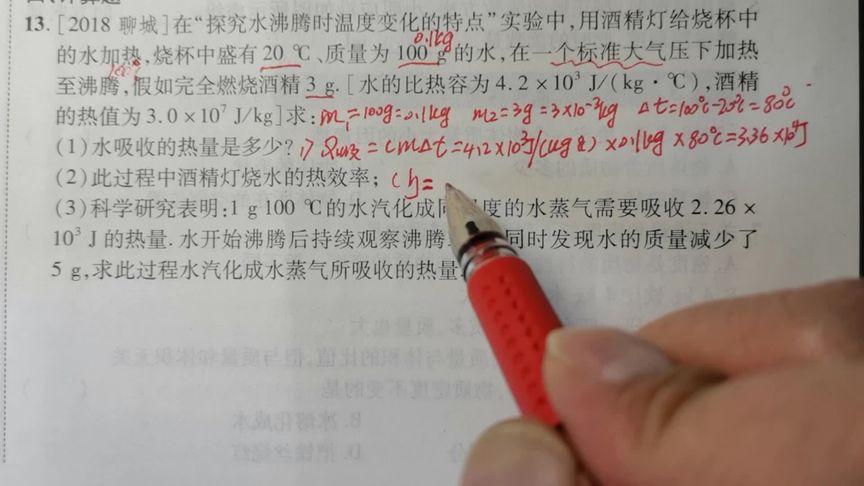 13.[2018 聊城]在“探究水沸腾时温度变化的特点”实验中,用酒精灯给烧杯中
0.1kg
的水加热,烧杯中盛有 20 ℃、质量为 100 g 的水,在一个标准大气压下加热
100℃
至沸腾,假如完全燃烧酒精 3 g.[水的比热容为 4.2×10³ J/(kg·℃),酒精
的热值为 3.0×10⁷ J/kg]求: m₁=100g=0.1kg m₂=3g=3×10⁻³kg Δt=100℃-20℃=80℃
(1)水吸收的热量是多少? 1) Q吸=cmΔt=4.2×10³J/(kg·℃)×0.1kg×80℃=3.36×10⁴J
(2)此过程中酒精灯烧水的热效率; η=
(3)科学研究表明:1 g 100 ℃的水汽化成同 度的水蒸气需要吸收 2.26×
10³ J 的热量.水开始沸腾后持续观察沸腾 同时发现水的质量减少了
5 g,求此过程水汽化成水蒸气所吸收的热量